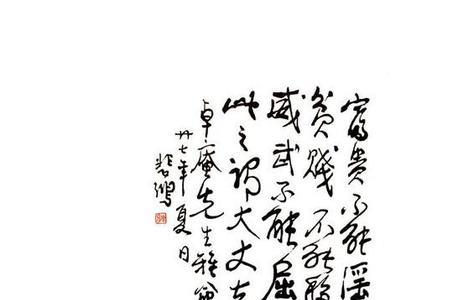 富貴不能淫
貧賤不能移
威武不能屈
此之謂大丈夫
卓庵先生雅
廿七年夏日
悲鴻